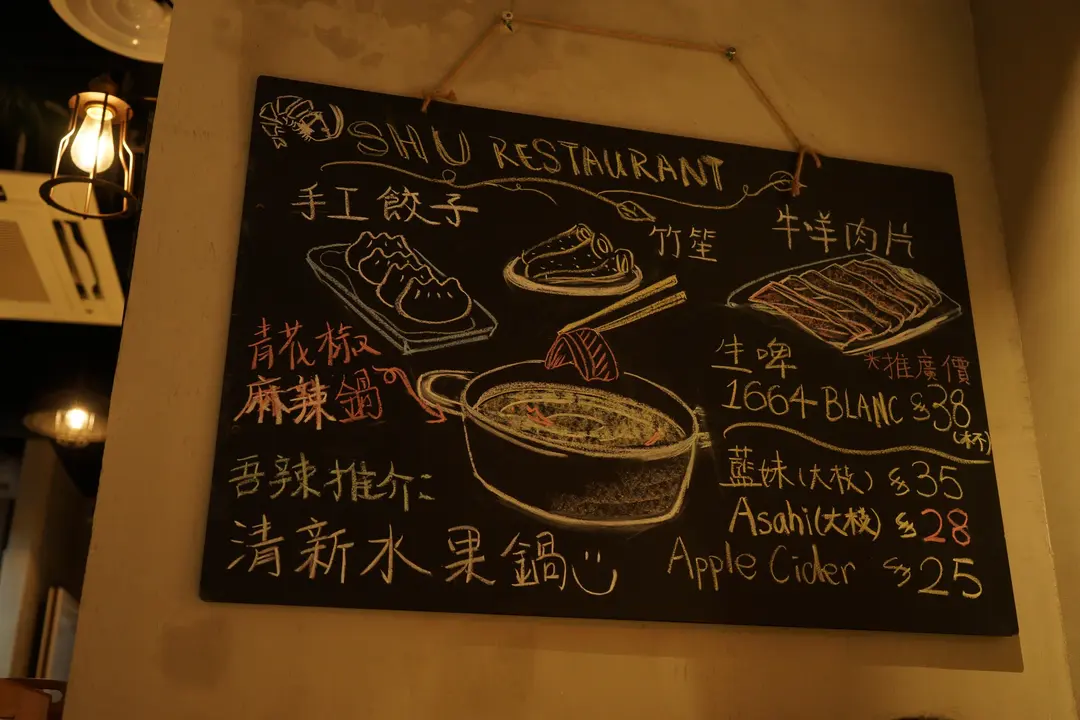 SHU RESTAURANT
手工餃子
竹笙
牛羊肉片
青花椒
麻辣鍋
吾辣推介:
清新水果鍋
生啤 *推廣價
1664 BLANC $38
(杯)
藍妹(大枝) $35
Asahi(大枝) $28
Apple Cider $25